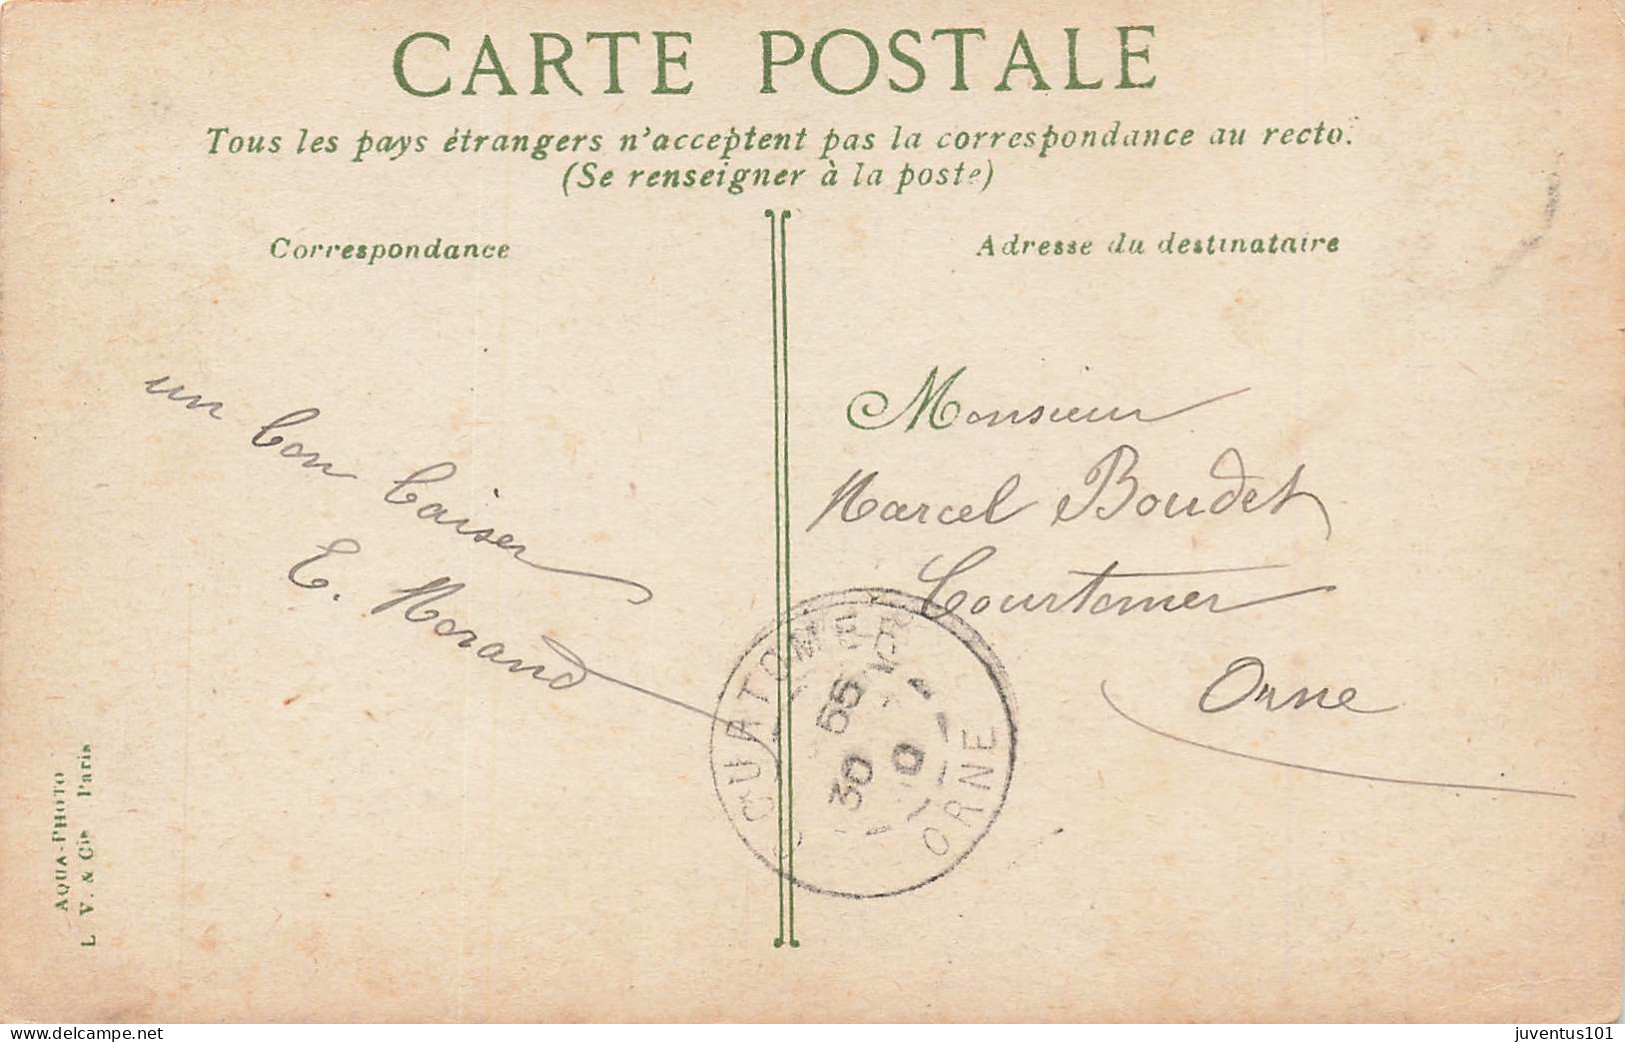 CARTE POSTALE
Tous les pays étrangers n'acceptent pas la correspondance au recto.
(Se renseigner à la poste)
Correspondance
Adresse du destinataire
un bon baiser
E. Morand
Monsieur
Marcel Boudet
Courtomer
Orne
COURTOMER
ORNE
AQUA-PHOTO
L. V. & Cie Paris
www.delcampe.net
juventus101